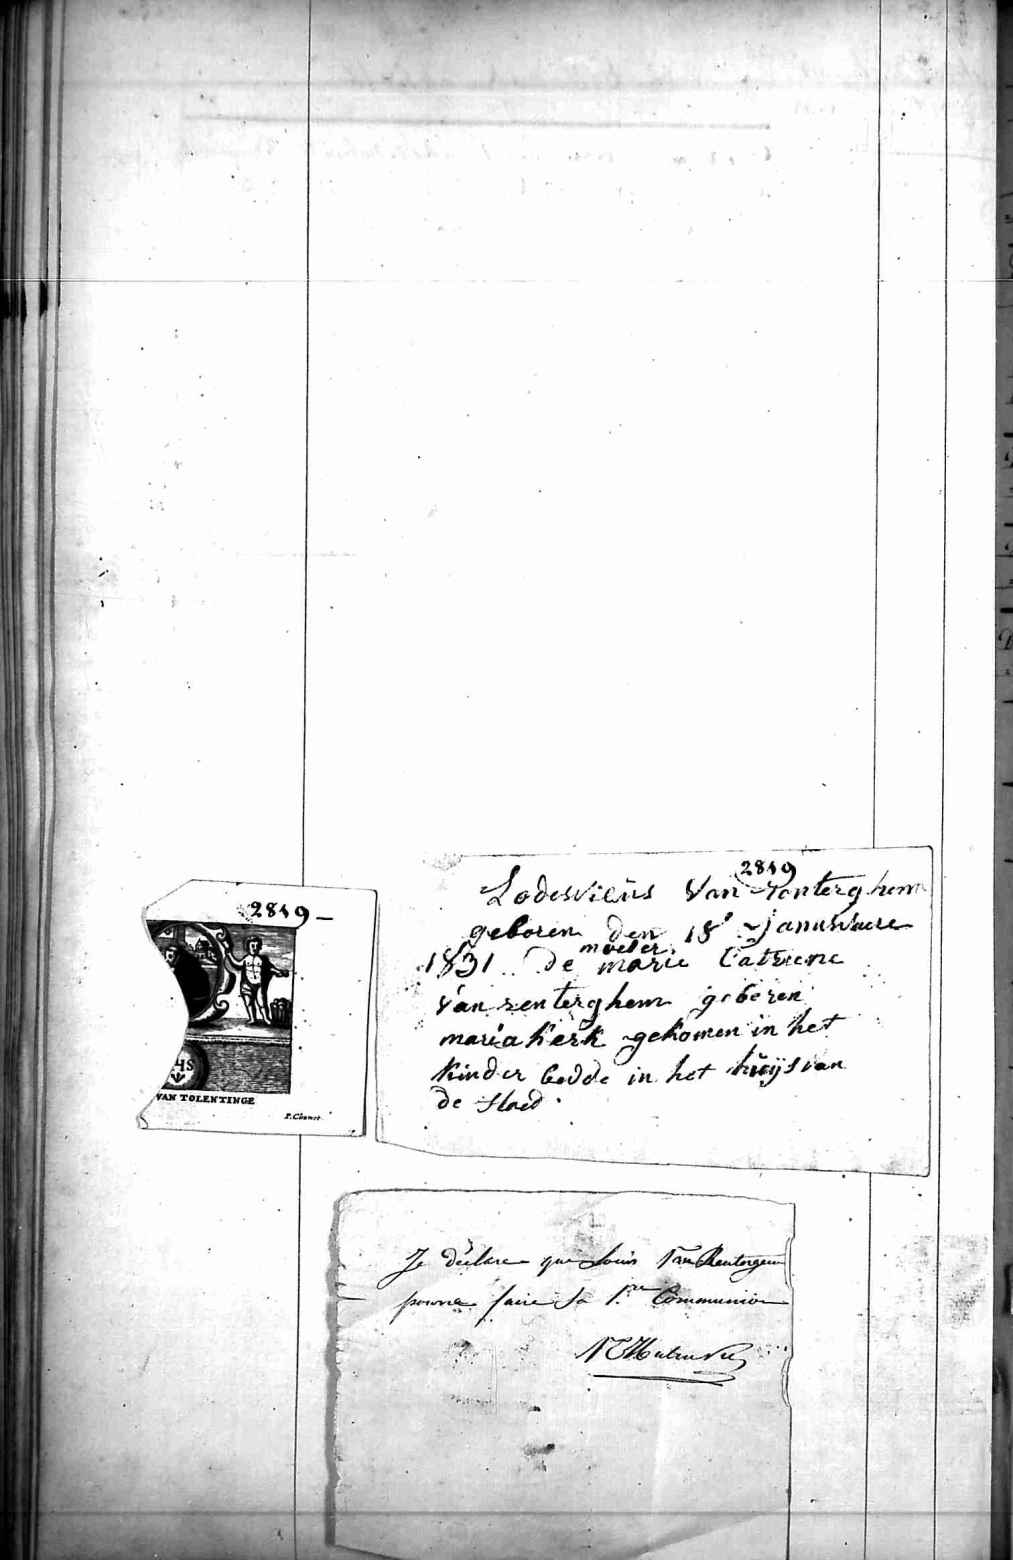 2849 –
HS
VAN TOLENTINGE
2849
Lodewicus Van Renterghem
geboren den 18' Januwaere
1831 De moeder marie Catriene
van renterghem geboren
maria kerk gekomen in het
kinder bedde in het huijs van
de stad
Je déclare que Louis Van Rentergem
pourra faire sa 1.re Communion